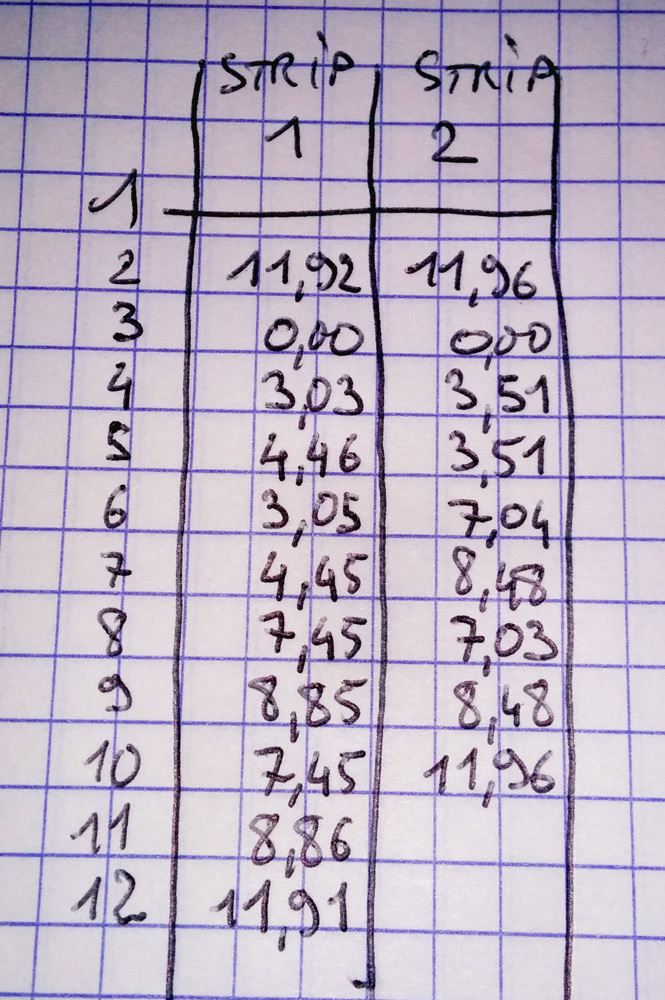 STRIP STRIP
1 2
1
2 11,92 11,96
3 0,00 0,00
4 3,03 3,51
5 4,46 3,51
6 3,05 7,04
7 4,45 8,48
8 7,45 7,03
9 8,85 8,48
10 7,45 11,96
11 8,86
12 11,91